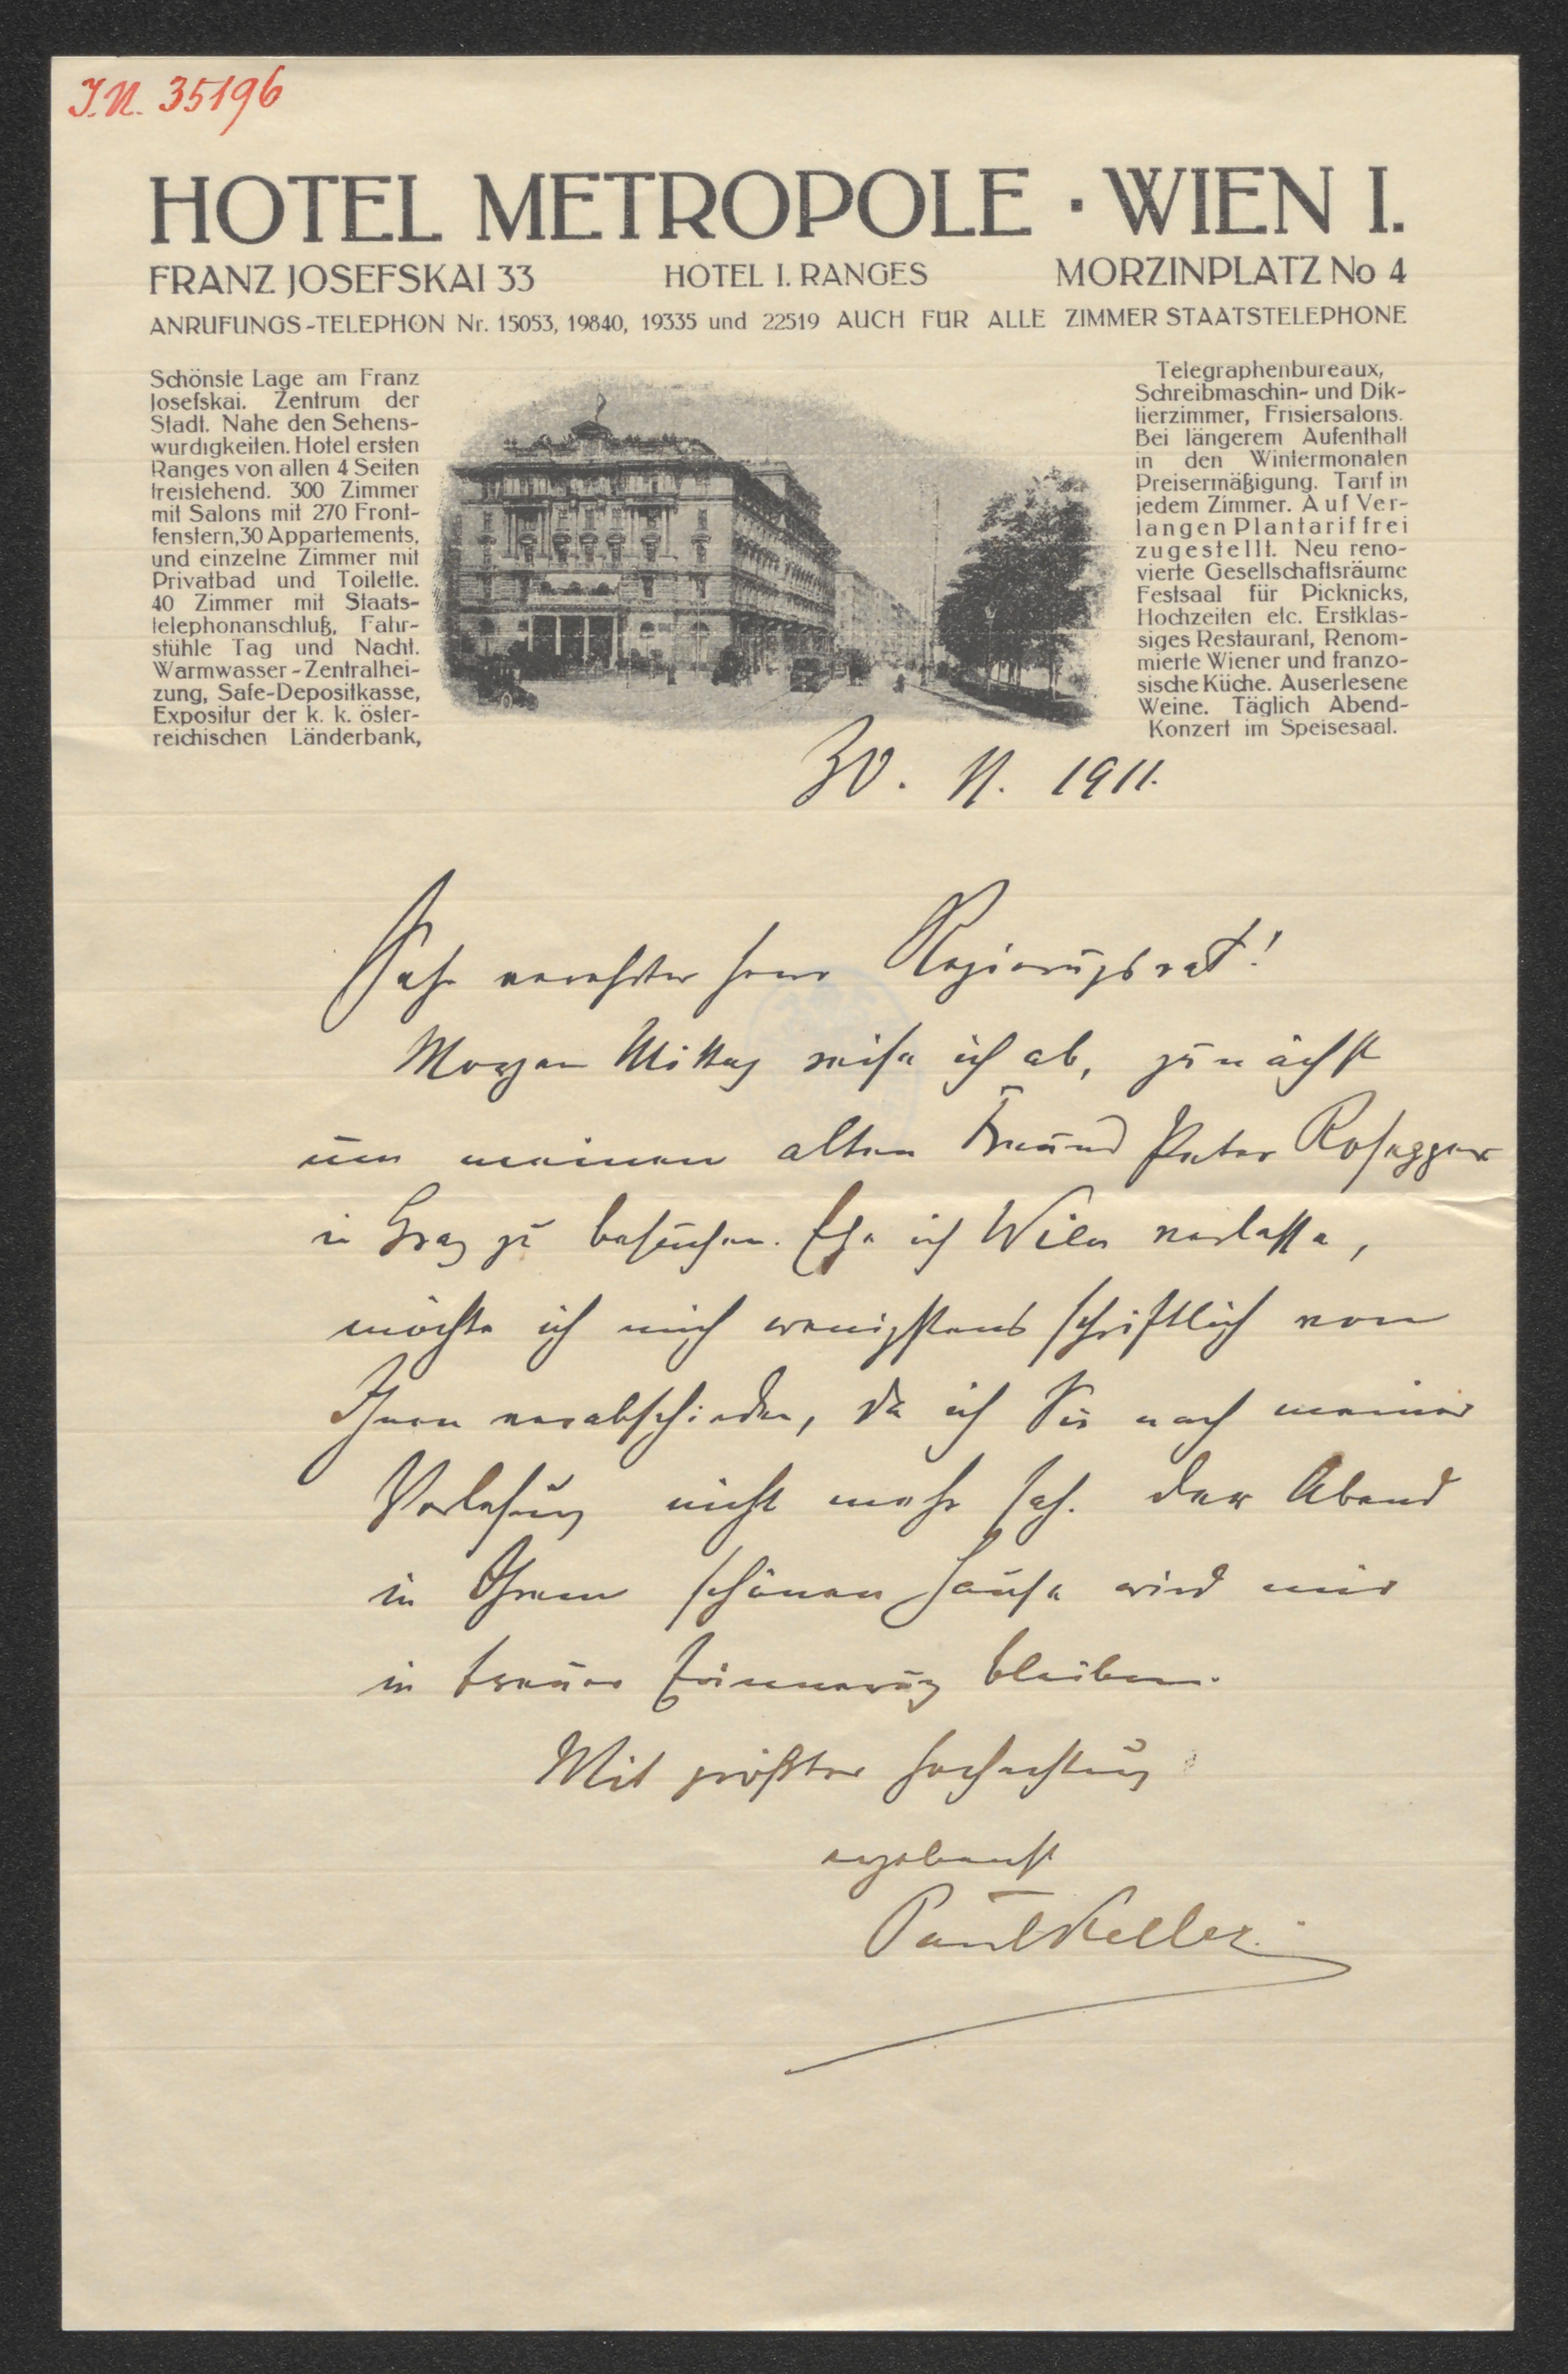 J.N. 35196
HOTEL METROPOLE · WIEN I.
FRANZ JOSEFSKAI 33 HOTEL I. RANGES MORZINPLATZ No 4
ANRUFUNGS-TELEPHON Nr. 15053, 19840, 19335 und 22519 AUCH FÜR ALLE ZIMMER STAATSTELEPHONE
Schönste Lage am Franz
Josefskai. Zentrum der
Stadt. Nahe den Sehens-
würdigkeiten. Hotel ersten
Ranges von allen 4 Seiten
freistehend. 300 Zimmer
mit Salons mit 270 Front-
fenstern, 30 Appartements,
und einzelne Zimmer mit
Privatbad und Toilette.
40 Zimmer mit Staats-
telephonanschluß, Fahr-
stühle Tag und Nacht.
Warmwasser-Zentralhei-
zung, Safe-Depositkasse,
Expositur der k. k. öster-
reichischen Länderbank,
Telegraphenbureaux,
Schreibmaschin- und Dik-
tierzimmer, Frisiersalons.
Bei längerem Aufenthalt
in den Wintermonaten
Preisermäßigung. Tarif in
jedem Zimmer. Auf Ver-
langen Plantarif frei
zugestellt. Neu reno-
vierte Gesellschaftsräume
Festsaal für Picknicks,
Hochzeiten etc. Erstklas-
siges Restaurant, Renom-
mierte Wiener und franzö-
sische Küche. Auserlesene
Weine. Täglich Abend-
Konzert im Speisesaal.
30. 11. 1911.
Sehr verehrter Herr Regierungsrat!
Morgen Mittag reise ich ab, zunächst
um meinen alten Freund Peter Rosegger
in Graz zu besuchen. Ehe ich Wien verlasse,
möchte ich mich wenigstens schriftlich von
Ihnen verabschieden, da ich Sie nach meiner
Vorlesung nicht mehr sah. Der Abend
in Ihrem schönen Hause wird mir
in treuer Erinnerung bleiben.
Mit größter Hochachtung
ergebenst
Paul Keller.